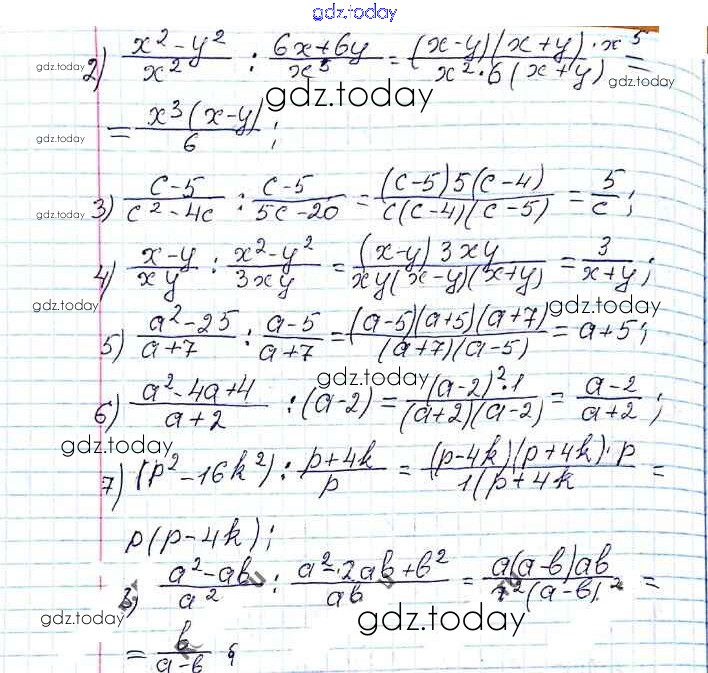 gdz.today
2) (x² - y²)/x² : (6x + 6y)/x⁵ = ((x-y)(x+y)·x⁵)/(x²·6(x+y)) =
gdz.today
gdz.today
gdz.today
= x³(x-y)/6 ;
gdz.today
3) (c-5)/(c²-4c) : (c-5)/(5c-20) = ((c-5)5(c-4))/(c(c-4)(c-5)) = 5/c ;
gdz.today
4) (x-y)/(xy) : (x²-y²)/(3xy) = ((x-y)3xy)/(xy(x-y)(x+y)) = 3/(x+y) ;
gdz.today
gdz.today
5) (a²-25)/(a+7) : (a-5)/(a+7) = ((a-5)(a+5)(a+7))/((a+7)(a-5)) = a+5 ;
gdz.today
6) (a²-4a+4)/(a+2) : (a-2) = ((a-2)²·1)/((a+2)(a-2)) = (a-2)/(a+2) ;
gdz.today
gdz.today
7) (p²-16k²) : (p+4k)/p = ((p-4k)(p+4k)·p)/(1(p+4k) =
p(p-4k) ;
(a²-ab)/a² : (a²-2ab+b²)/(ab) = (a(a-b)ab)/(a²(a-b)²) =
gdz.today
gdz.today
gdz.today
= b/(a-b) ;